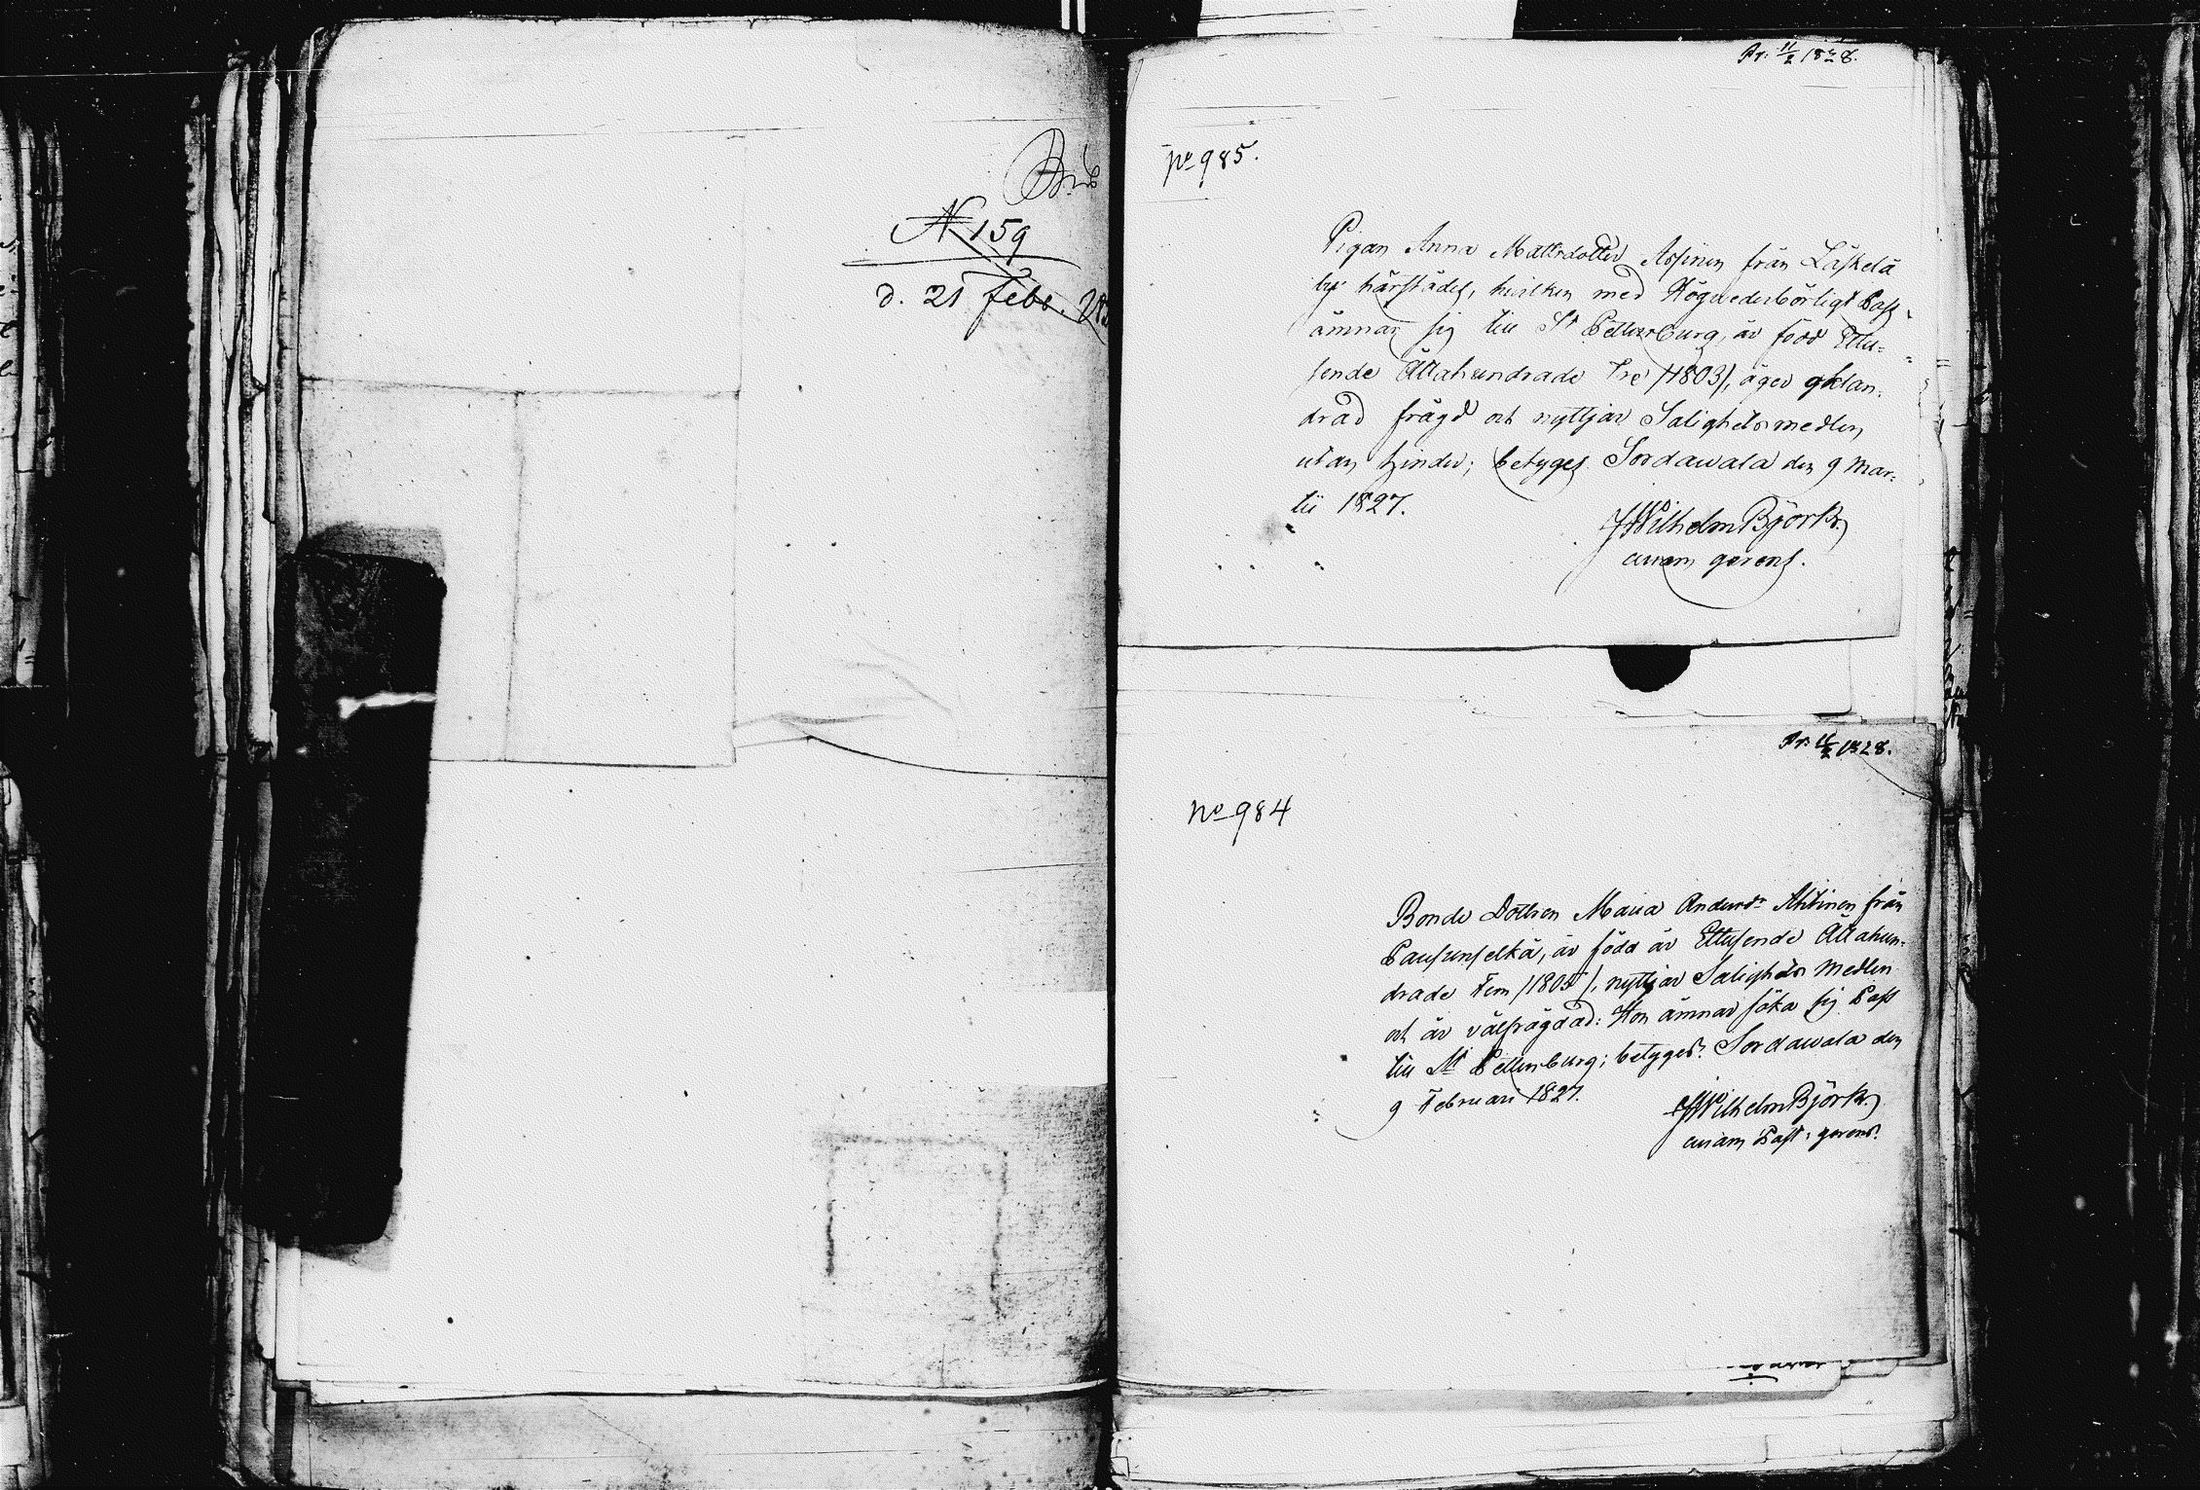 N 159
d. 21 febr.
Pr. 11/2 1828.
No 985.
Pigan Anna Mattsdotter Assinen från Läskelä
by härstädes, hvilken med Högvederbörligt Pass
ämnar sig till St Pettersburg, är född Ettu-
sende Åttahundrade Tre /1803/, äger oklan-
drad frägd och nyttjar Salighetsmedlen
utan hinder; betyges Sordawala den 9 Mar-
tii 1827.
JWilhelm Björk
curam gerens.
Pr. 11/2 1828.
No 984
Bonde Dottren Maria Andersdr Ahtinen från
Pausunselkä, är född år Ettusende Åttahun-
drade Fem /1805/, nyttjar Salighets Medlen
och är välfrägdad: Hon ämnar söka sig Pass
till St Pettersburg; betyges. Sordawala den
9 Februari 1827.
JWilhelm Björk
curam Past. gerens.